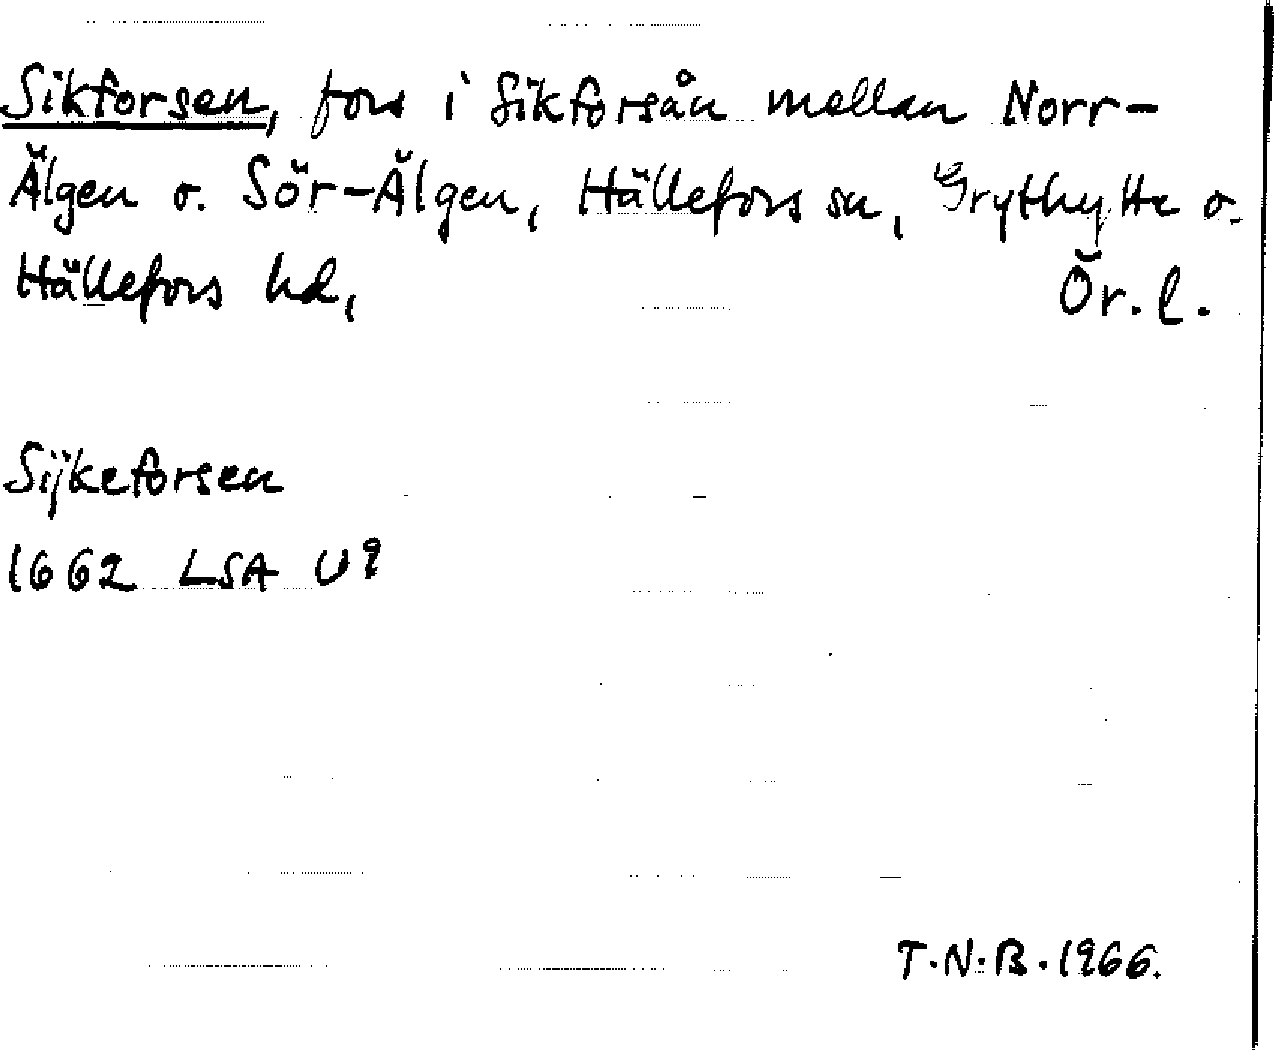 Sikforsen, fors i Sikforsån mellan Norr-
Älgen o. Sör-Älgen, Hällefors sn, Grythytte o.
Hällefors hd, Ör. l.
Sijkeforsen
1662 LSA U9
T.N.B. 1966.